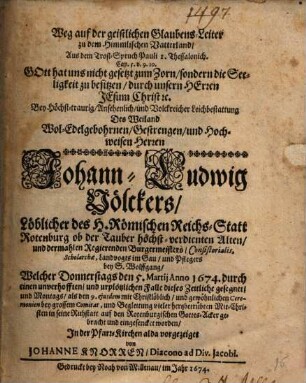 1497.
Weg auf der geistlichen Glaubens-Leiter
zu dem Himmlischen Vatterland/
Aus dem Trost-Spruch Pauli 1. Thessalonich.
Cap. 5. v. 9. 10.
GOtt hat uns nicht gesetzt zum Zorn/ sondern die See-
ligkeit zu besitzen/ durch unsern HErren
JEsum Christ ꝛc.
Bey Höchst-traurig/ Ansehnlich/ und Volckreicher Leichbestattung
Des Weiland
Wol-Edelgebohrnen/ Gestrengen/ und Hoch-
weisen Herren
Johann-Ludwig
Völckers/
Löblicher des H. Römischen Reichs/ Statt
Rotenburg ob der Tauber höchst-verdienten Alten/
und dermahlen Regierenden Burgermeisters/ Consistorialis,
Scholarchæ, Landvogts im Gau/ und Pflegers
bey S. Wolffgang/
Welcher Donnerstags den 5. Martij Anno 1674. durch
einen unverhofften/ und urplötzlichen Falle dieses Zeitliche gesegnet/
und Montags/ als den 9. ejusdem mit Christlöblich/ und gewöhnlichen Cere-
monien bey grossem Comitat, und Begleitung vieler hochbetrübten Mit-Chri-
sten in seine Ruhstatt auf den Rotenburgischen Gottes-Acker ge-
bracht und eingesencket worden/
In der Pfarr-Kirchen alda vorgezeiget
von
JOHANNE KNORREN/ Diacono ad Div. Jacobi.
Gedruckt bey Noah von Millenau/ im Jahr 1674.